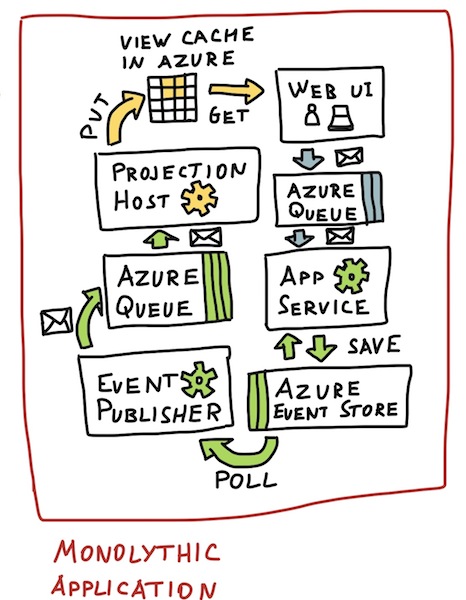 VIEW CACHE
IN AZURE
PUT
GET
WEB UI
PROJECTION
HOST
AZURE
QUEUE
AZURE
QUEUE
APP
SERVICE
SAVE
EVENT
PUBLISHER
AZURE
EVENT STORE
POLL
MONOLYTHIC
APPLICATION